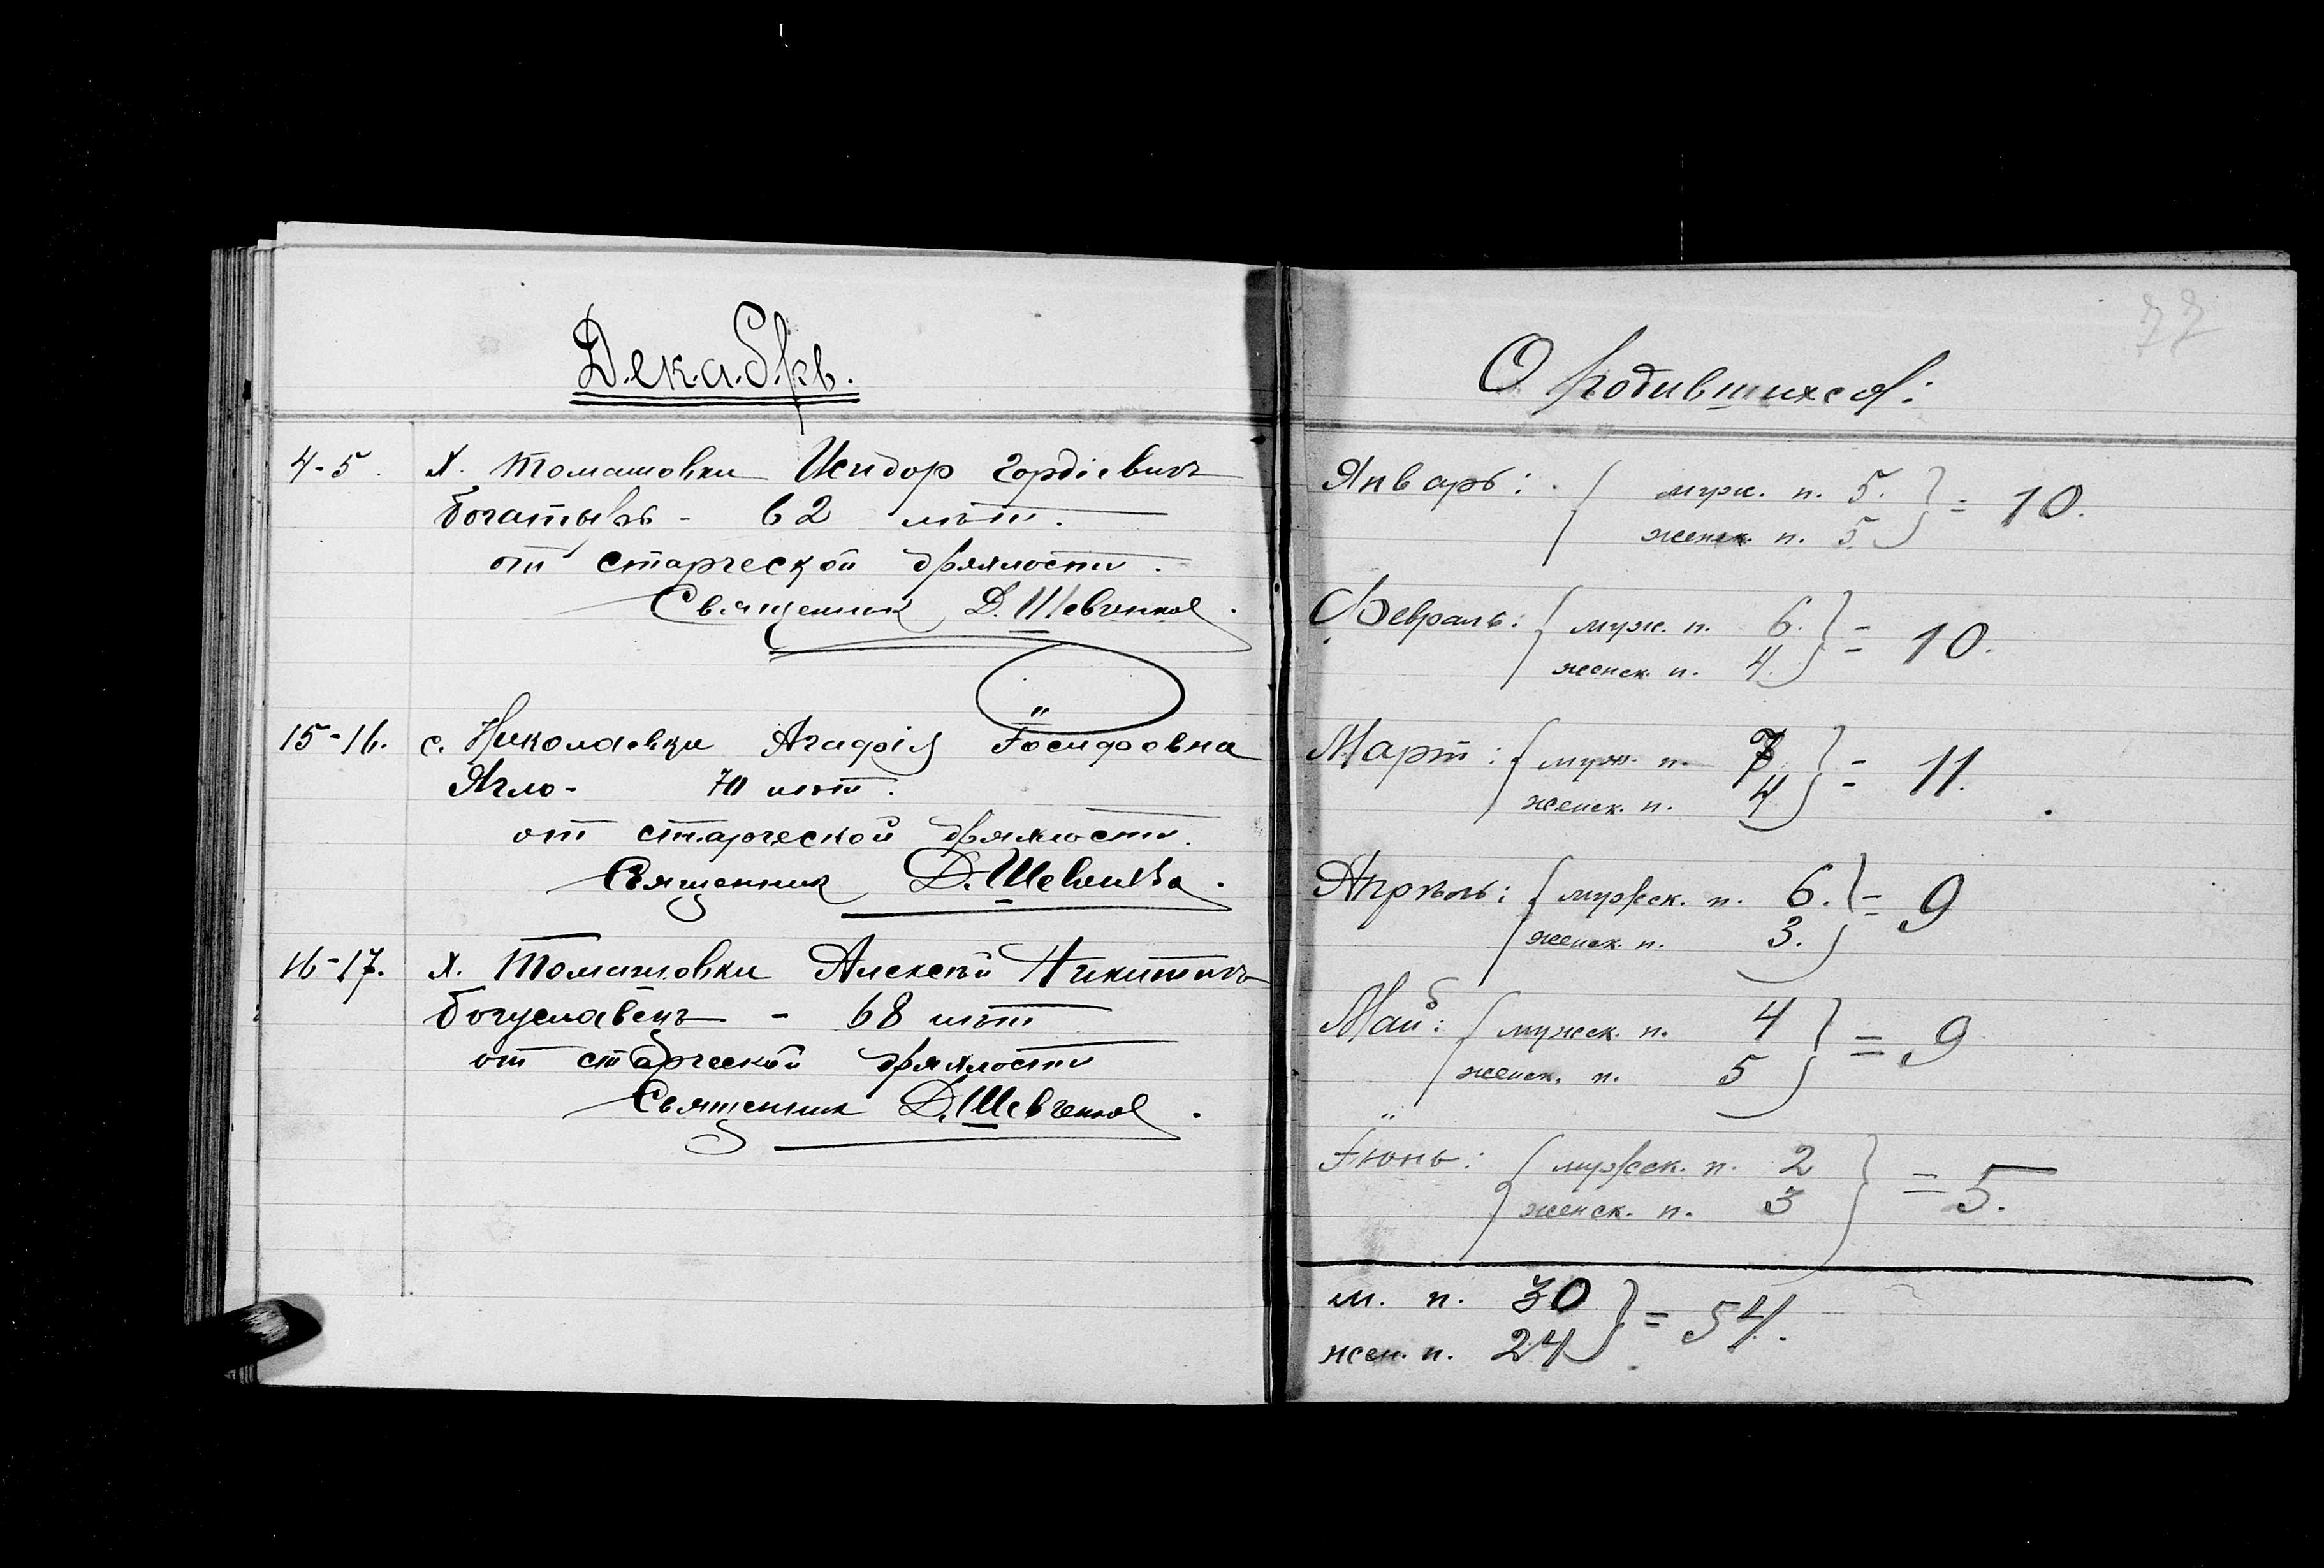 Декабрь.
4-5. х. Томашовки Исидор Гордіевичъ
Богатырь - 62 лѣт.
от старческой дряхлости.
Священник Д. Шевченко.
15-16. с. Николаевки Агафія Іосифовна
Ягло- 70 лѣт.
от старческой дряхлости.
Священник Д. Шевченко.
16-17. х. Томашовки Алексѣй Никитичъ
Богуславецъ - 68 лѣт
от старческой дряхлости
Священник Д. Шевченко.
77
О родившихся:
Январь: муж. п. 5. = 10.
женск. п. 5.
Февраль: муж. п. 6. = 10.
женск. п. 4.
Март: муж. п. 7 = 11.
женск. п. 4
Апрѣль: мужск. п. 6. = 9
женск. п. 3.
Май: мужск. п. 4 = 9
женск. п. 5
Іюнь: мужск. п. 2 = 5.
женск. п. 3
м. п. 30 = 54.
жен. п. 24